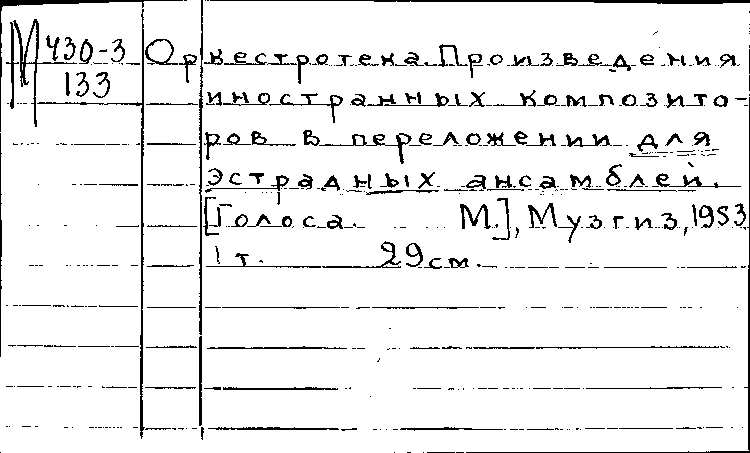 М Ч30-3
133
Оркестротека. Произведения
иностранных композито-
ров в переложении для
эстрадных ансамблей.
[Голоса. М.], Музгиз, 1953
1 т. 29 см.